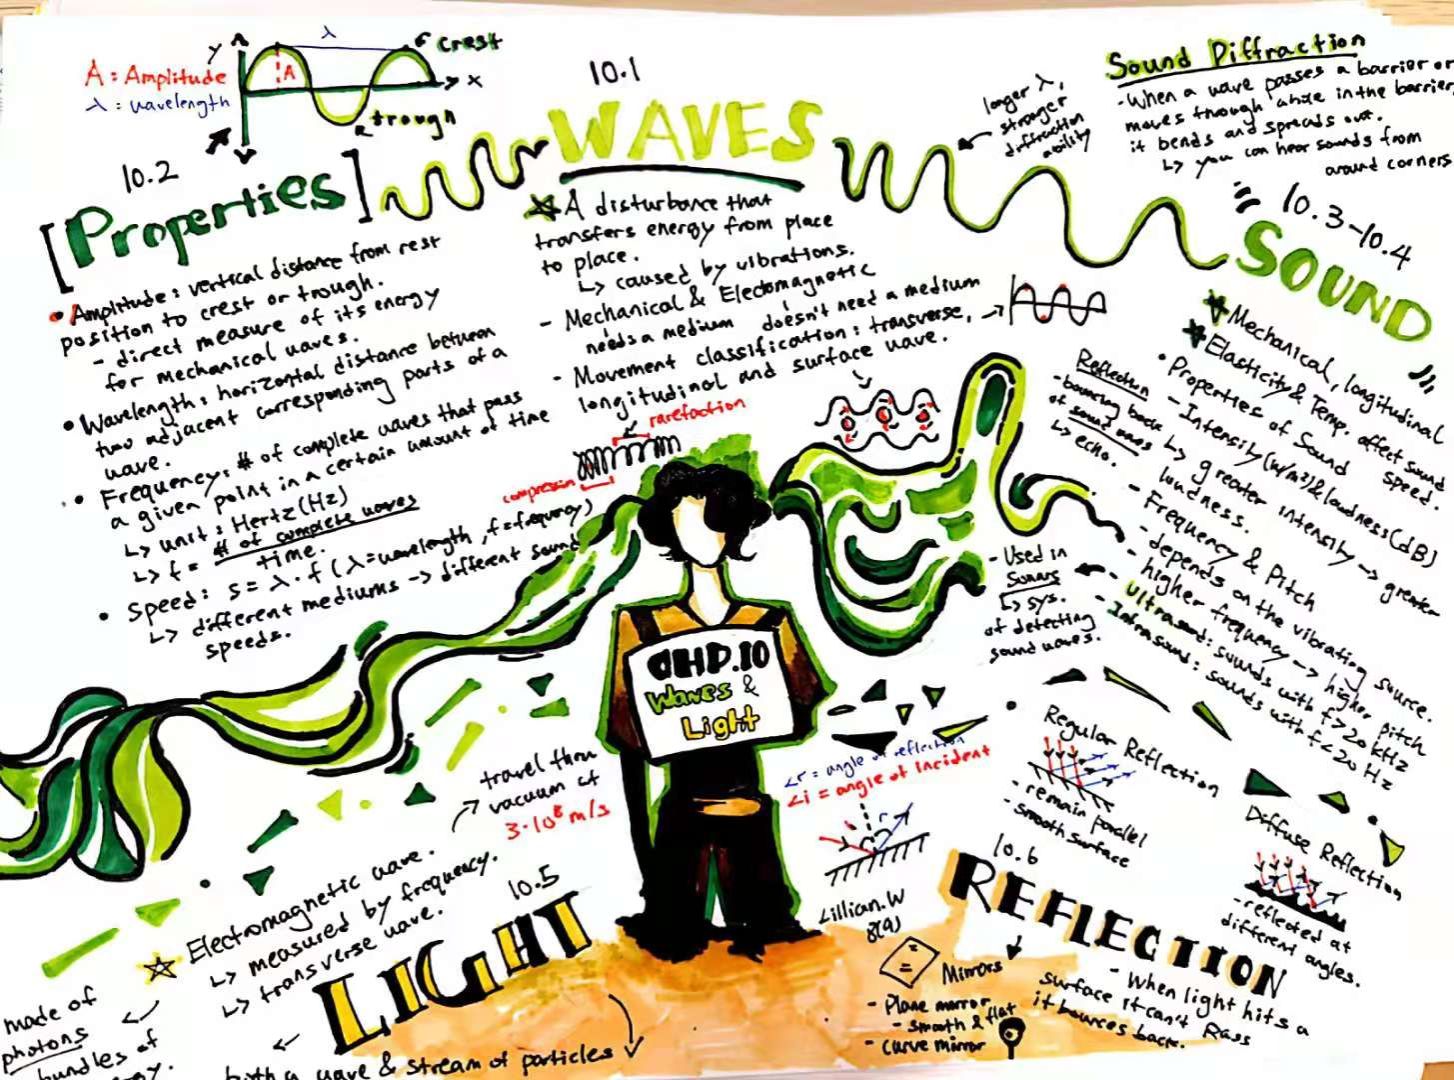 A = Amplitude
λ = wavelength
y
λ
A
crest
x
trough
10.1
WAVES
A disturbance that
transfers energy from place
to place.
↳ caused by vibrations.
- Mechanical & Electromagnetic
needs a medium doesn't need a medium
- Movement classification: transverse,
longitudinal and surface wave.
rarefaction
compression
10.2
[Properties]
• Amplitude: vertical distance from rest
position to crest or trough.
- direct measure of its energy
for mechanical waves.
• Wavelength: horizontal distance between
two adjacent corresponding parts of a
wave.
• Frequency: # of complete waves that pass
a given point in a certain amount of time
↳ unit: Hertz (Hz)
↳ f = # of complete waves
time.
• Speed: s = λ·f (λ=wavelength, f=frequency)
↳ different mediums -> different sound
speeds.
longer λ,
stronger
diffraction
ability
Sound Diffraction
- When a wave passes a barrier or
moves through a hole in the barrier,
it bends and spreads out.
↳ you can hear sounds from
around corners
10.3-10.4
SOUND
Mechanical, longitudinal
Elasticity & Temp. affect sound
speed.
• Properties of Sound
- Intensity (w/m²) & loudness (dB)
↳ greater intensity -> greater
loudness.
- Frequency & Pitch
- depends on the vibrating source.
- higher frequency -> higher pitch
- ultrasound: sounds with f > 20 kHz
- Infrasound: sounds with f < 20 Hz
Reflection
- bouncing back
of sound waves
↳ echo.
- Used in
Sonars
↳ sys.
of detecting
sound waves.
CHP.10
Waves &
Light
∠r = angle of reflection
∠i = angle of incident
r
Lillian.W
8(9)
• Regular Reflection
- remain parallel
- smooth surface
• Diffuse Reflection
- reflected at
different angles.
10.6
REFLECTION
- When light hits a
surface it can't Pass
it bounces back.
Mirrors
- Plane mirror
- smooth & flat
- curve mirror
10.5
LIGHT
travel thru
vacuum at
3·10⁸ m/s
Electromagnetic wave.
↳ measured by frequency.
↳ transverse wave.
made of
photons
bundles of
both a wave & stream of particles